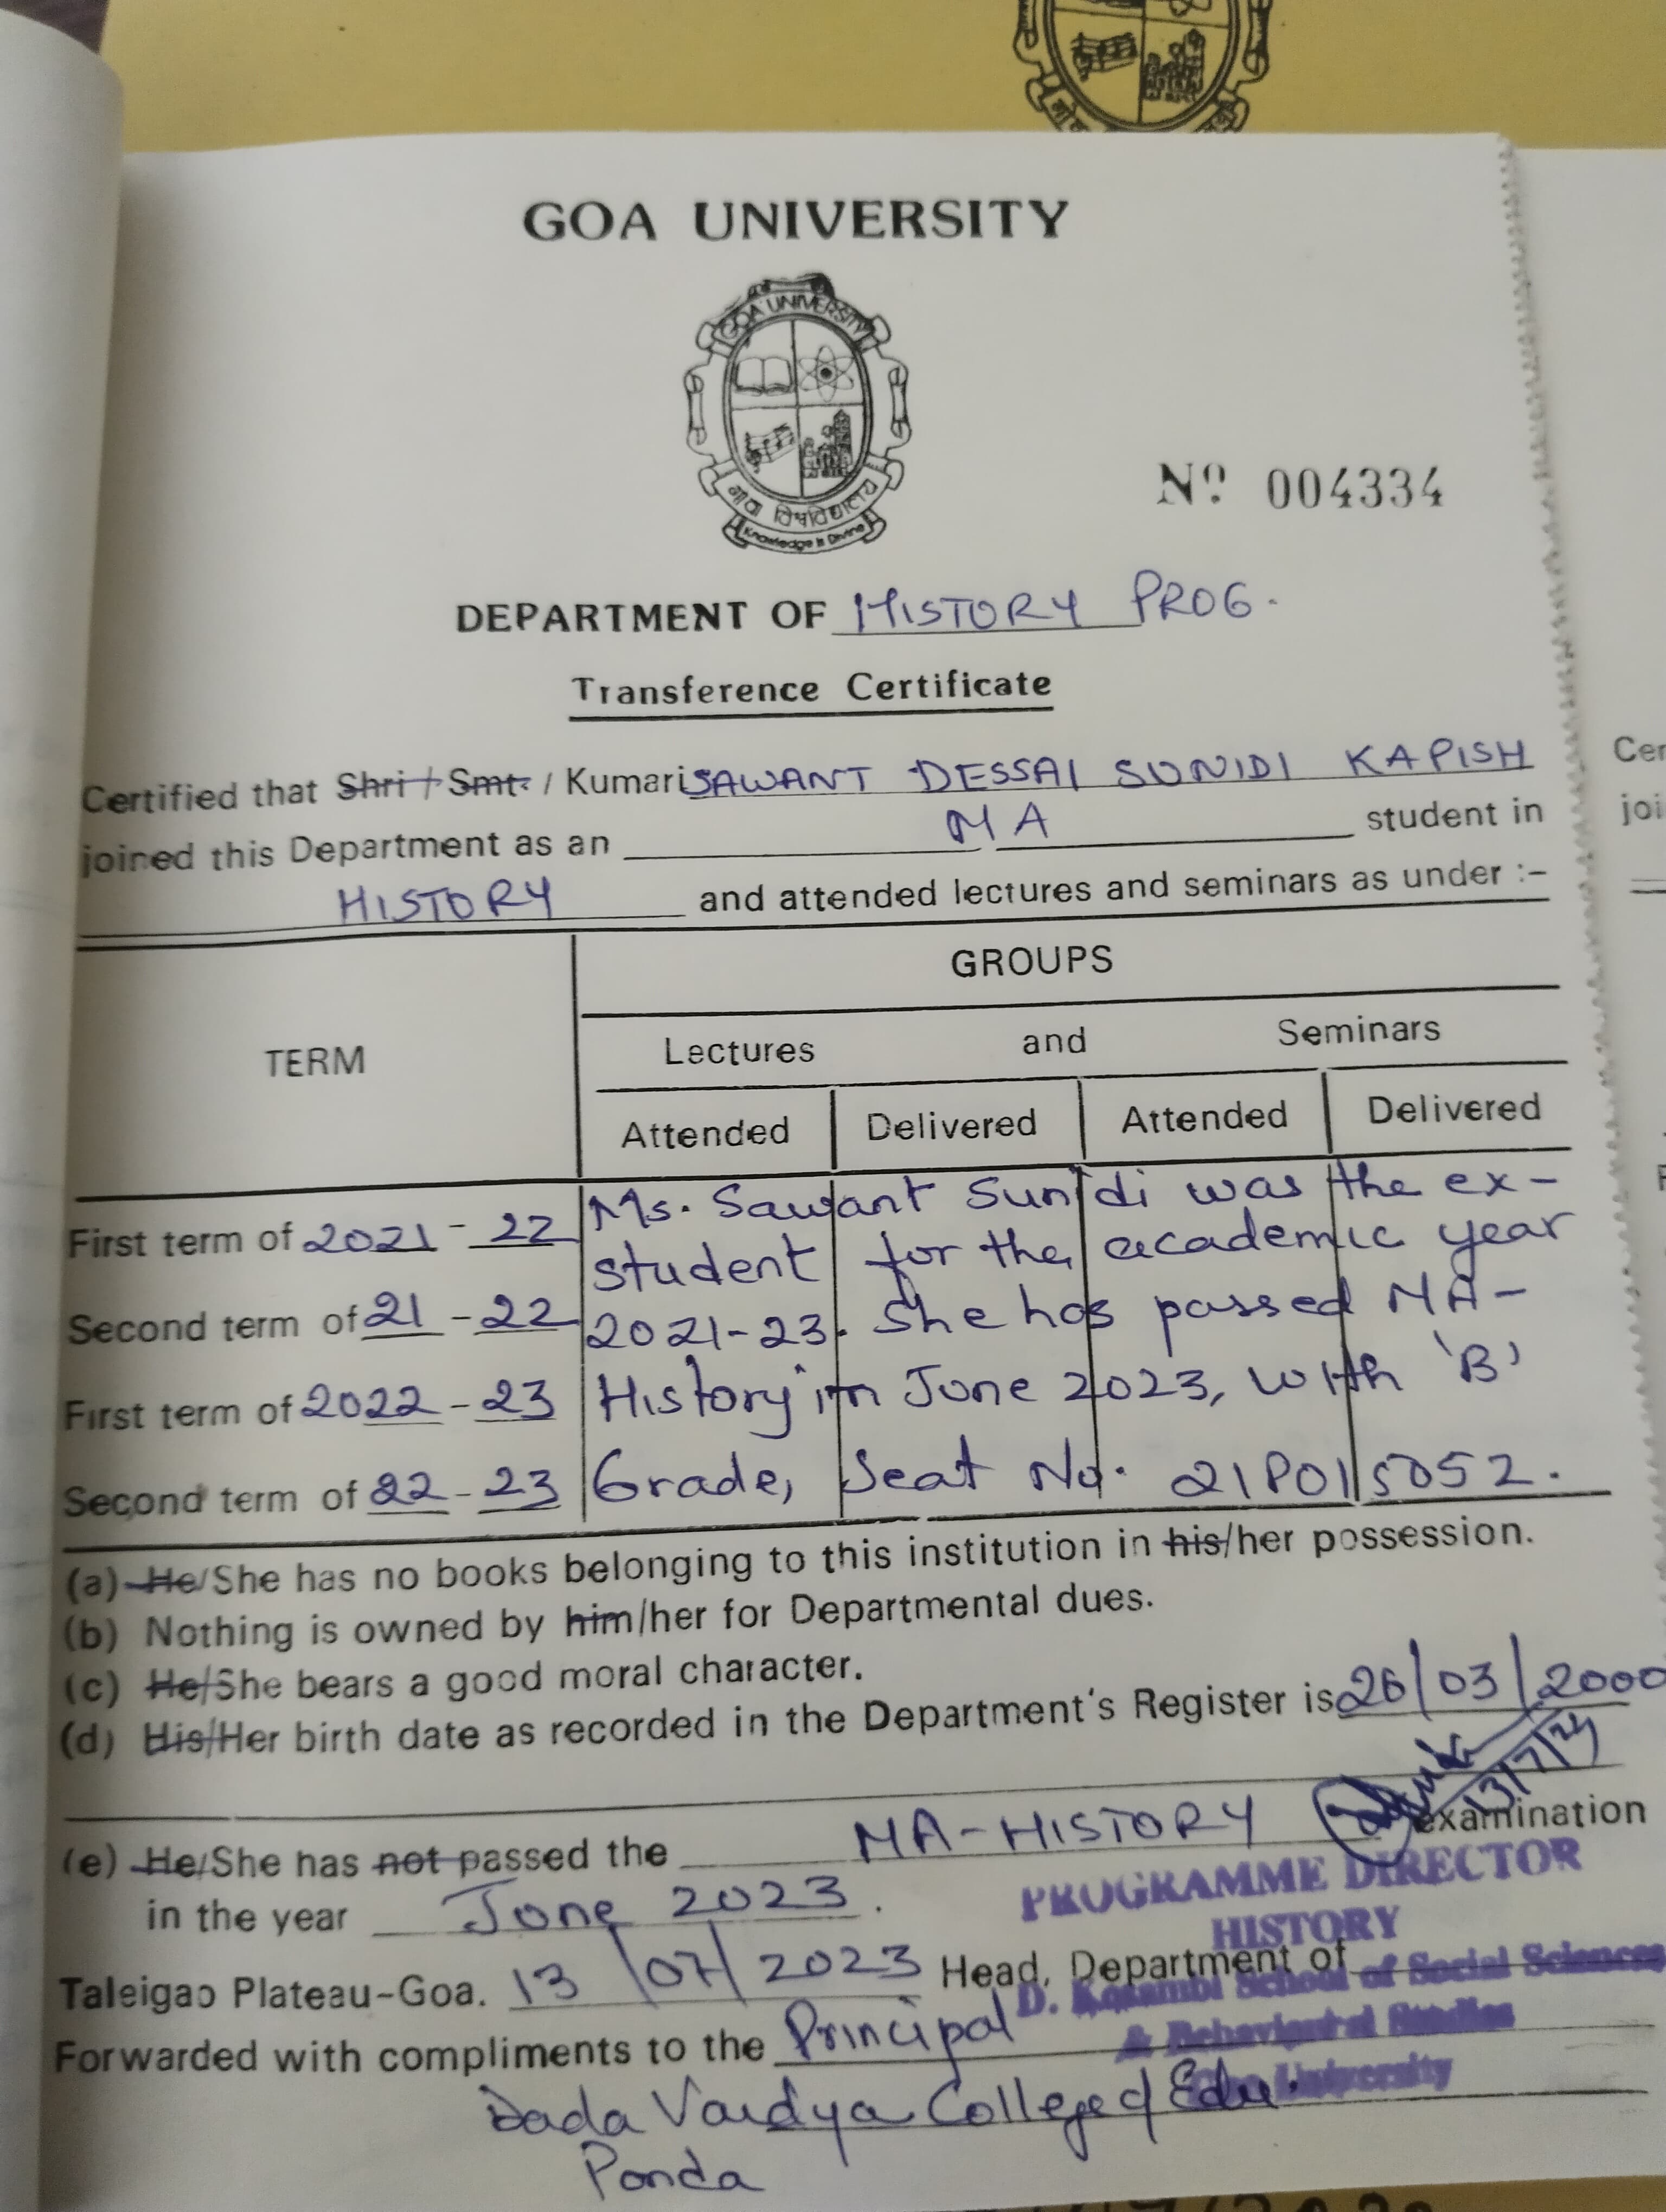 GOA UNIVERSITY
GOA UNIVERSITY
Knowledge is Divine
Nº 004334
DEPARTMENT OF HISTORY PROG.
Transference Certificate
Certified that Shri / Smt. / Kumari SAWANT DESSAI SUNIDI KAPISH
joined this Department as an MA student in
HISTORY and attended lectures and seminars as under :-
TERM
GROUPS
Lectures and Seminars
Attended Delivered Attended Delivered
First term of 2021 - 22 Ms. Sawant Sunidi was the ex-
student for the academic year
Second term of 21 - 22 2021-23. She has passed MA-
First term of 2022 - 23 History in June 2023, with 'B'
Second term of 22 - 23 Grade, Seat No. 21P0115052.
(a) He/She has no books belonging to this institution in his/her possession.
(b) Nothing is owned by him/her for Departmental dues.
(c) He/She bears a good moral character.
(d) His/Her birth date as recorded in the Department's Register is 26/03/2000
13/7/23
(e) He/She has not passed the MA-HISTORY examination
in the year June 2023.
PROGRAMME DIRECTOR
HISTORY
Taleigao Plateau-Goa. 13/07/2023 Head, Department of
D. Kosambi School of Social Sciences
& Behavioural Studies
Goa University
Forwarded with compliments to the Principal
Dada Vaidya College of Edu.
Ponda
Cer
joi